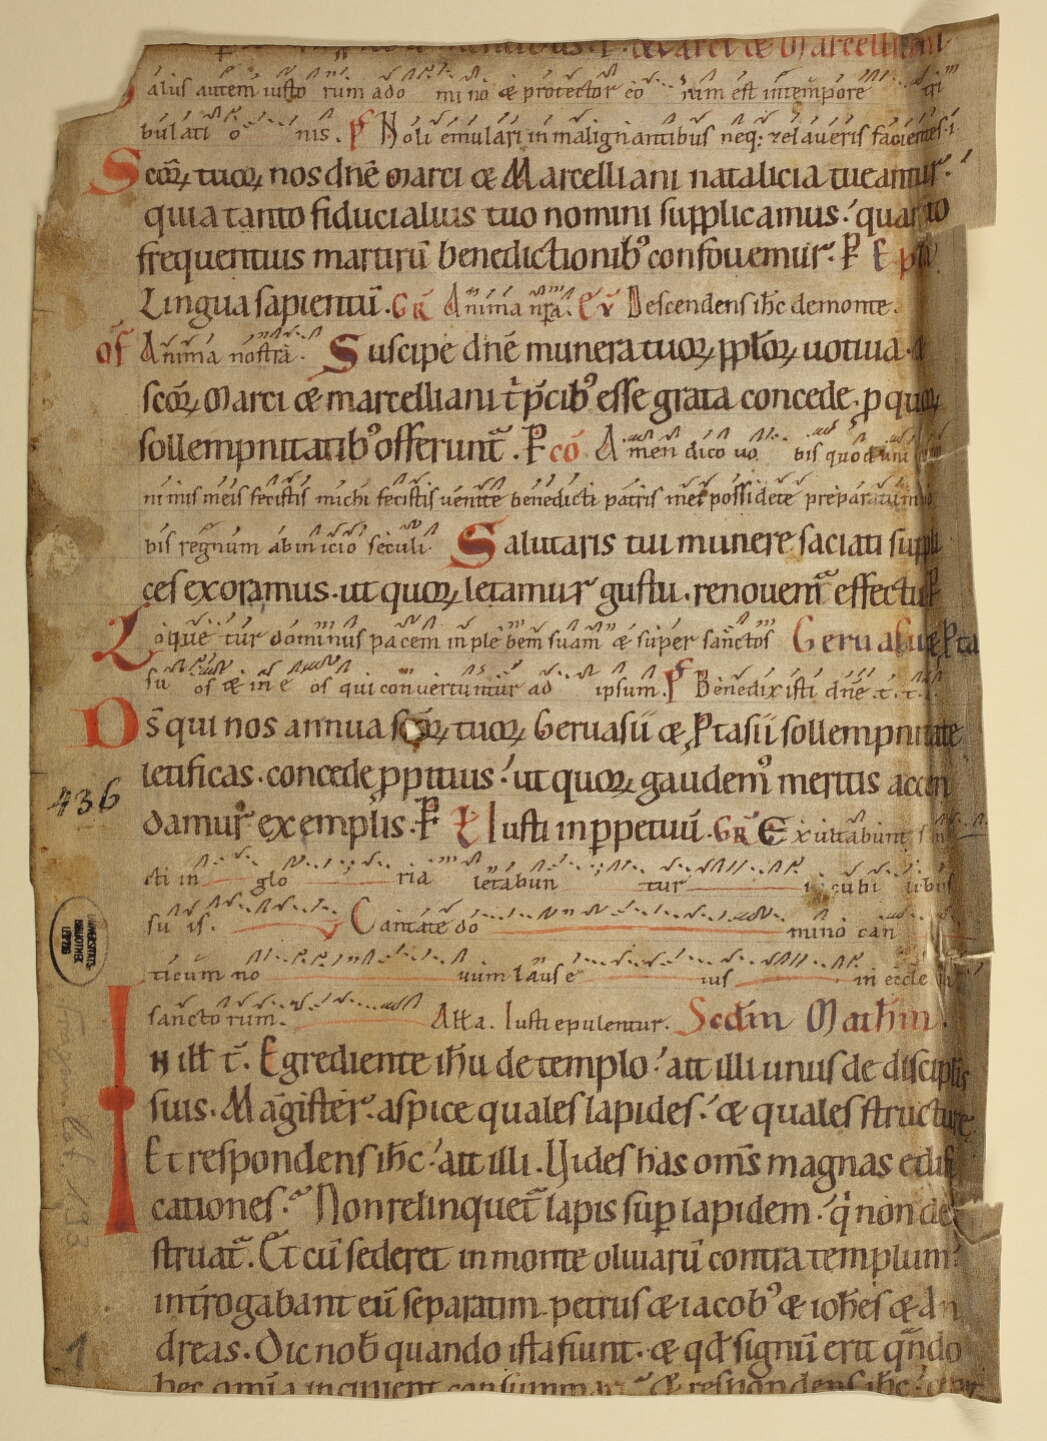 Marci æ Marcelliani
alus autem iusto rum a do mi no æ protector eo rum est in tempore tri
bulati o nis. Noli emulari in malignantibus neq; zelaveris facientes i
Scōꝝ tuoꝝ nos dnē Marci æ Marcelliani natalicia tueantur.
quia tanto fiducialius tuo nomini supplicamus. quanto
frequentius martirū benedictionib᾽ confovemur. P Epl̄a
Lingua sapientū. GR Anima nr̄a. Ev Descendens ih̄c de monte.
of Anima nostra. Suscipe dnē munera tuoꝝ pplōꝝ uotiua
scōꝝ Marci æ marcelliani t̄ p̄cib᾽ esse grata concede. p quoꝝ
sollempnitatib᾽ offerunt̄. P cō Amen dico uo bis quod uni
nimis meis fecistis michi fecistis uenite benedicti patris mei possidete preparatum uo
bis regnum ab inicio seculi Salutaris tui munere saciati suppli
ces exoramus. ut quoꝝ letamur gustu. renouem̄ effectu P
Loque tur dominus pacem in ple bem suam æ super sanctos Geruasii æ Pta
su os æ in e os qui convertuntur ad ipsum. Benedixisti dnē t. t.
Ds̄ qui nos annua scōꝝ tuoꝝ Geruasii æ Ptasii sollempnitate
letificas. concede ppitius. ut quoꝝ gaudem᾽ meritis accen
damur exemplis. P Iusti in ppetuū. GR Exultabunt san
cti in glo ria letabun tur in cubi libus
su is. Cantate do mino can
ticum no uum laus e ius in eccle sia
sanctorum. All̄a. Iusti epulentur. Scdm̄ Mathm̄
436
In ill̄ t̄. Egrediente ih̄u de templo. ait illi unus de discipl̄is
suis. Magister. aspice quales lapides. æ quales structure
Et respondens ih̄c. ait illi. Vides has om̄s magnas edifi
cationes. Non relinquet̄ lapis sup lapidem. qi non de
struat̄. Et cū sederet in monte oliuarū contra templum.
int̄rogabant eū separatim petrus æ iacob᾽ æ ioh̄es æ an
dreas. Dic nob̄ quando ista fiunt. æ qd̄ signū erit qn̄do
hec om̄ia incipient consummari. Æ respondens ih̄c.
UNIVERSITÄTS-
BIBLIOTHEK
LEIPZIG
Fragm. lat. 193
1